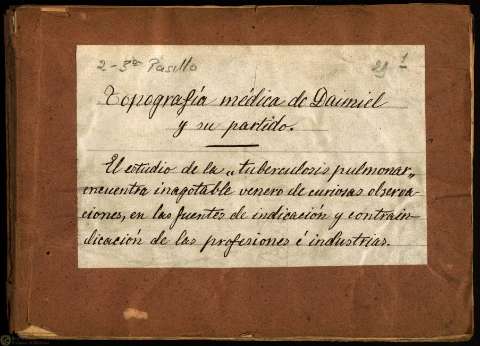 2-3º Pasillo
Topografía médica de Daimiel
y su partido.
El estudio de la „tuberculosis pulmonar„
encuentra inagotable venero de curiosas observa-
ciones, en las fuentes de indicación y contrain-
dicación de las profesiones é industrias.